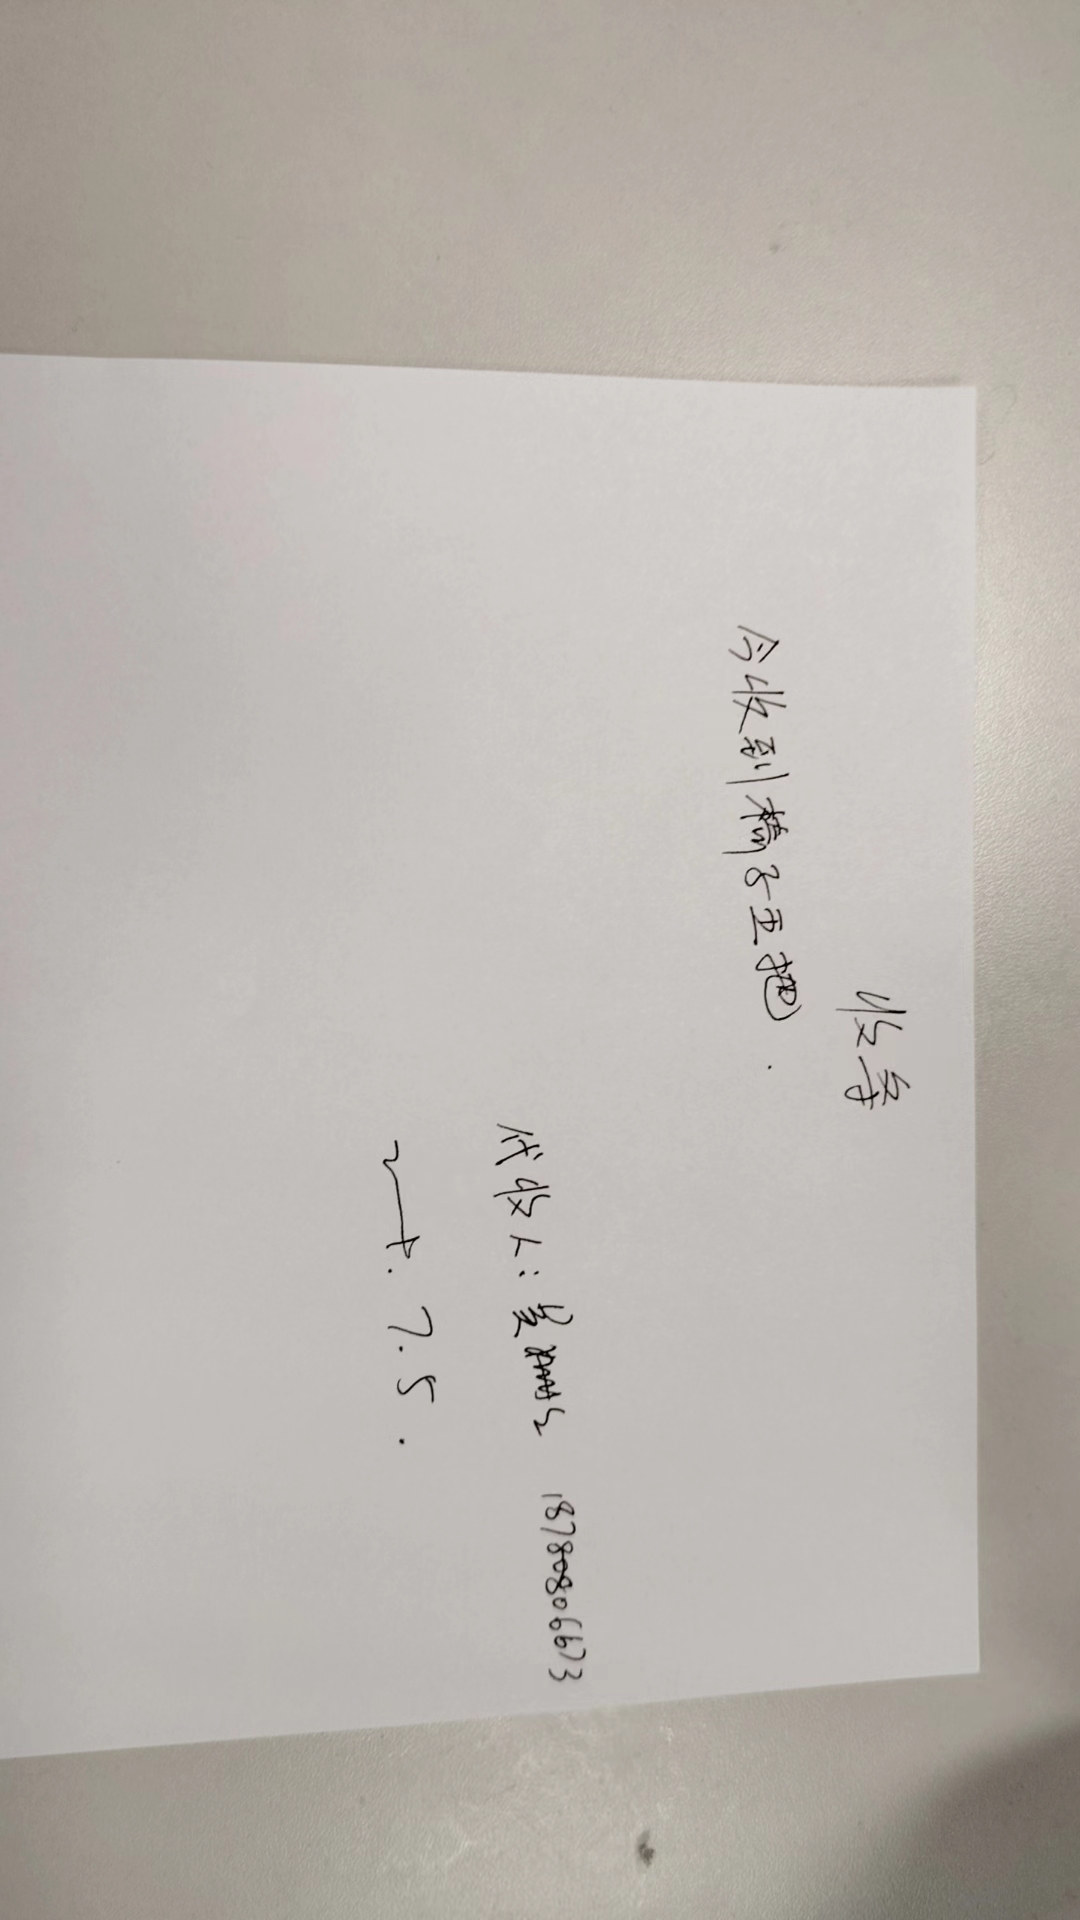 收条
今收到椅子五把.
代收人: 18780806673
7.5.